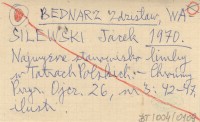 BEDNARZ Zdzisław, WA-
SILEWSKI Jacek 1970.
Najwyższe stanowisko limby
w Tatrach Polskich. – Chrońmy
Przyr. Ojcz. 26, nr 3: 42-47,
ilustr.
BT 1004/0109